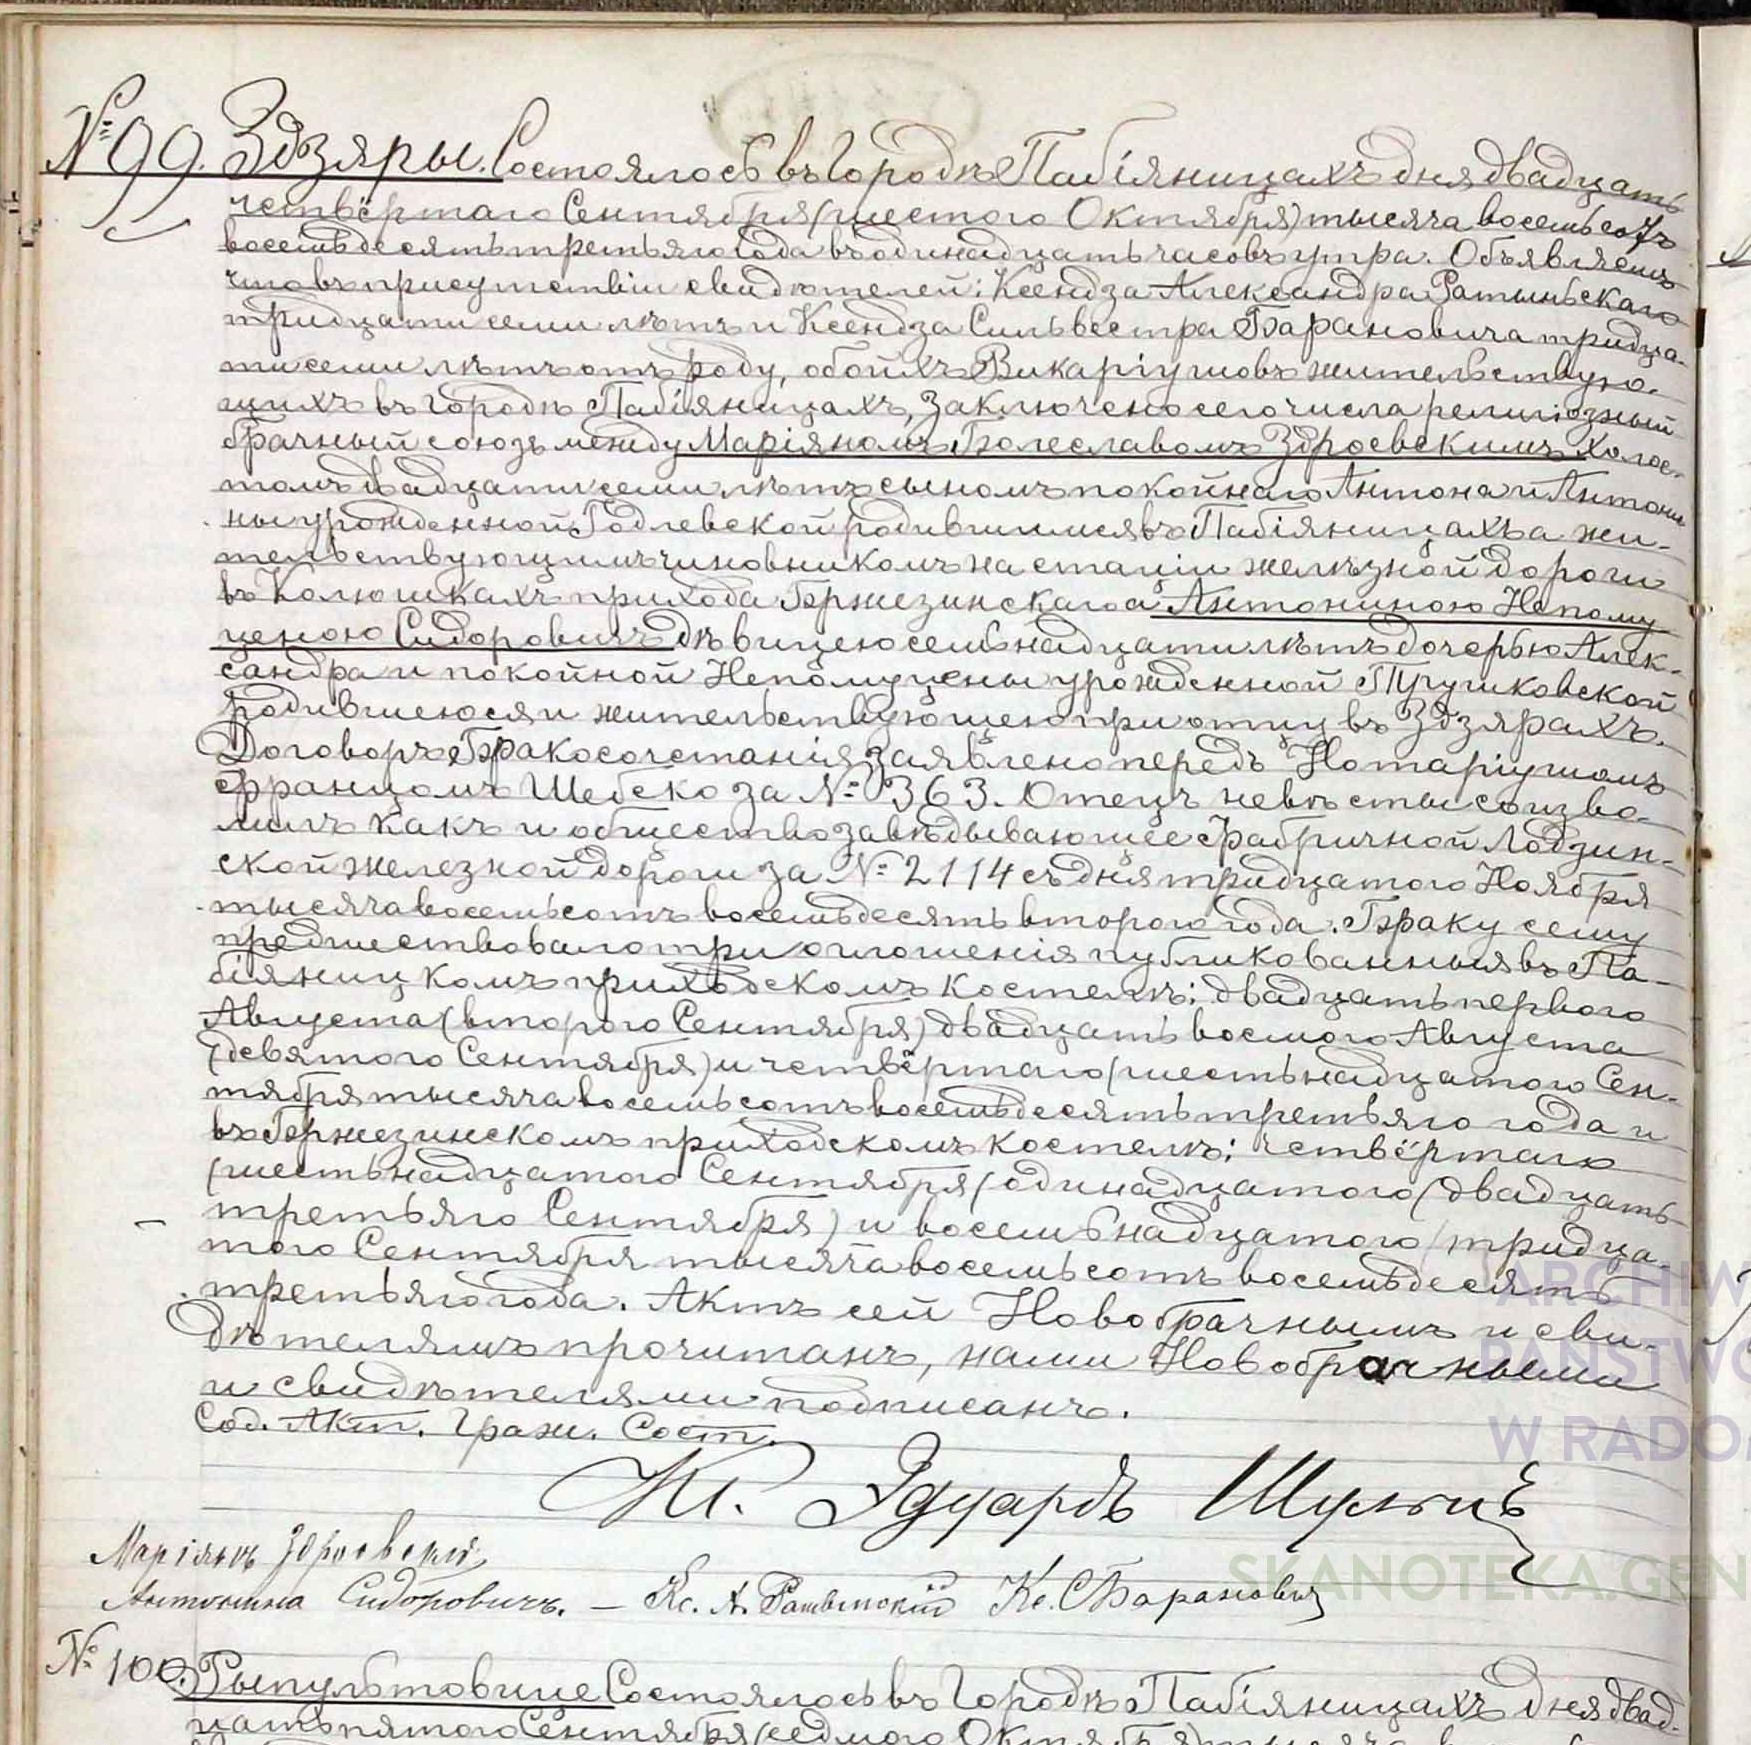 № 99. Здзяры. Состоялось въ Городѣ Пабіяницахъ дня двадцать
четвёртаго Сентября (шестого Октября) тысяча восемьсотъ
восемьдесятъ третьяго года въ одинадцать часовъ утра. Объявляемъ
что въ присутствіи свидѣтелей: Ксендза Александра Ратыньскаго
тридцати семи лѣтъ и Ксендза Сильвестра Барановича тридца-
ти семи лѣтъ отъ роду, обоихъ Викаріушовъ жительствую-
щихъ въ Городѣ Пабіяницахъ, заключено сего числа религіозный
брачный союзъ между Маріяномъ Болеславомъ Здроевскимъ холос-
томъ двадцати семи лѣтъ сыномъ покойнаго Антона и Антони-
ны урожденной Годлевской родившимся въ Пабіяницахъ а жи-
тельствующимъ чиновникомъ на стаціи желѣзной дороги
въ Колюшкахъ прихода Бржезинскаго а Антониною Непому
ценою Сидоровичъ дѣвицею семьнадцати лѣтъ дочерью Алек-
сандра и покойной Непомуцены урожденной Пружковской
родившеюся и жительствующею при отцу въ Здзярахъ.
Договоръ Бракосочетанія заявлено передъ Нотаріушомъ
Францомъ Шебско за № 363. Отецъ невѣсты соизво-
лилъ какъ и общество завѣдывающее Фабричной Лодзин-
ской железной дороги за № 2114 съ дня тридцатого Ноября
тысяча восемьсотъ восемьдесятъ второго года. Браку сему
предшествовало три оглошенія публикованныя въ Па-
біяницкомъ приходскомъ костелѣ: двадцать первого
Августа (второго Сентября) двадцать восмого Августа
(девятого Сентября) и четвёртаго (шестьнадцатого Сен-
тября тысяча восемьсотъ восемьдесятъ третьяго года и
въ Бржезинскомъ приходскомъ костелѣ: четвёртаго
(шестьнадцатого Сентября (одинадцатого (двадцать
третьяго Сентября) и восемьнадцатого (тридца-
того Сентября тысяча восемьсотъ восемьдесятъ
третьяго года. Актъ сей Новобрачнымъ и сви-
дѣтелямъ прочитанъ, нами Новобрачными
и свидѣтелями подписанъ.
Сод. Акт. Граж. Сост.
Кс. Эдуардъ Шульцъ
Маріянъ Здроевскій
Антонина Сидоровичъ. — Кс. А. Ратыньскій Кс. С Барановичъ
№ 100. Рыпультовице Состоялось въ Городѣ Пабіяницахъ дня двад-
цать пятого Сентября (седмого Октября)
ARCHIW
PAŃSTWO
W RADO
SKANOTEKA.GEN